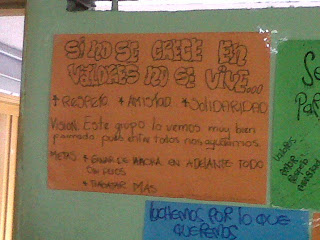 SI NO SE CRECE EN
VALORES NO SE VIVE...
* RESPETO * AMISTAD * SOLIDARIDAD
Vision: Este grupo lo vemos muy bien
formado pues entre todos nos ayudamos.
METAS: * ECHAR DE MANCHA EN ADELANTE TODO
* TRABAJAR MAS
LUCHEMOS POR LO QUE
QUEREMOS